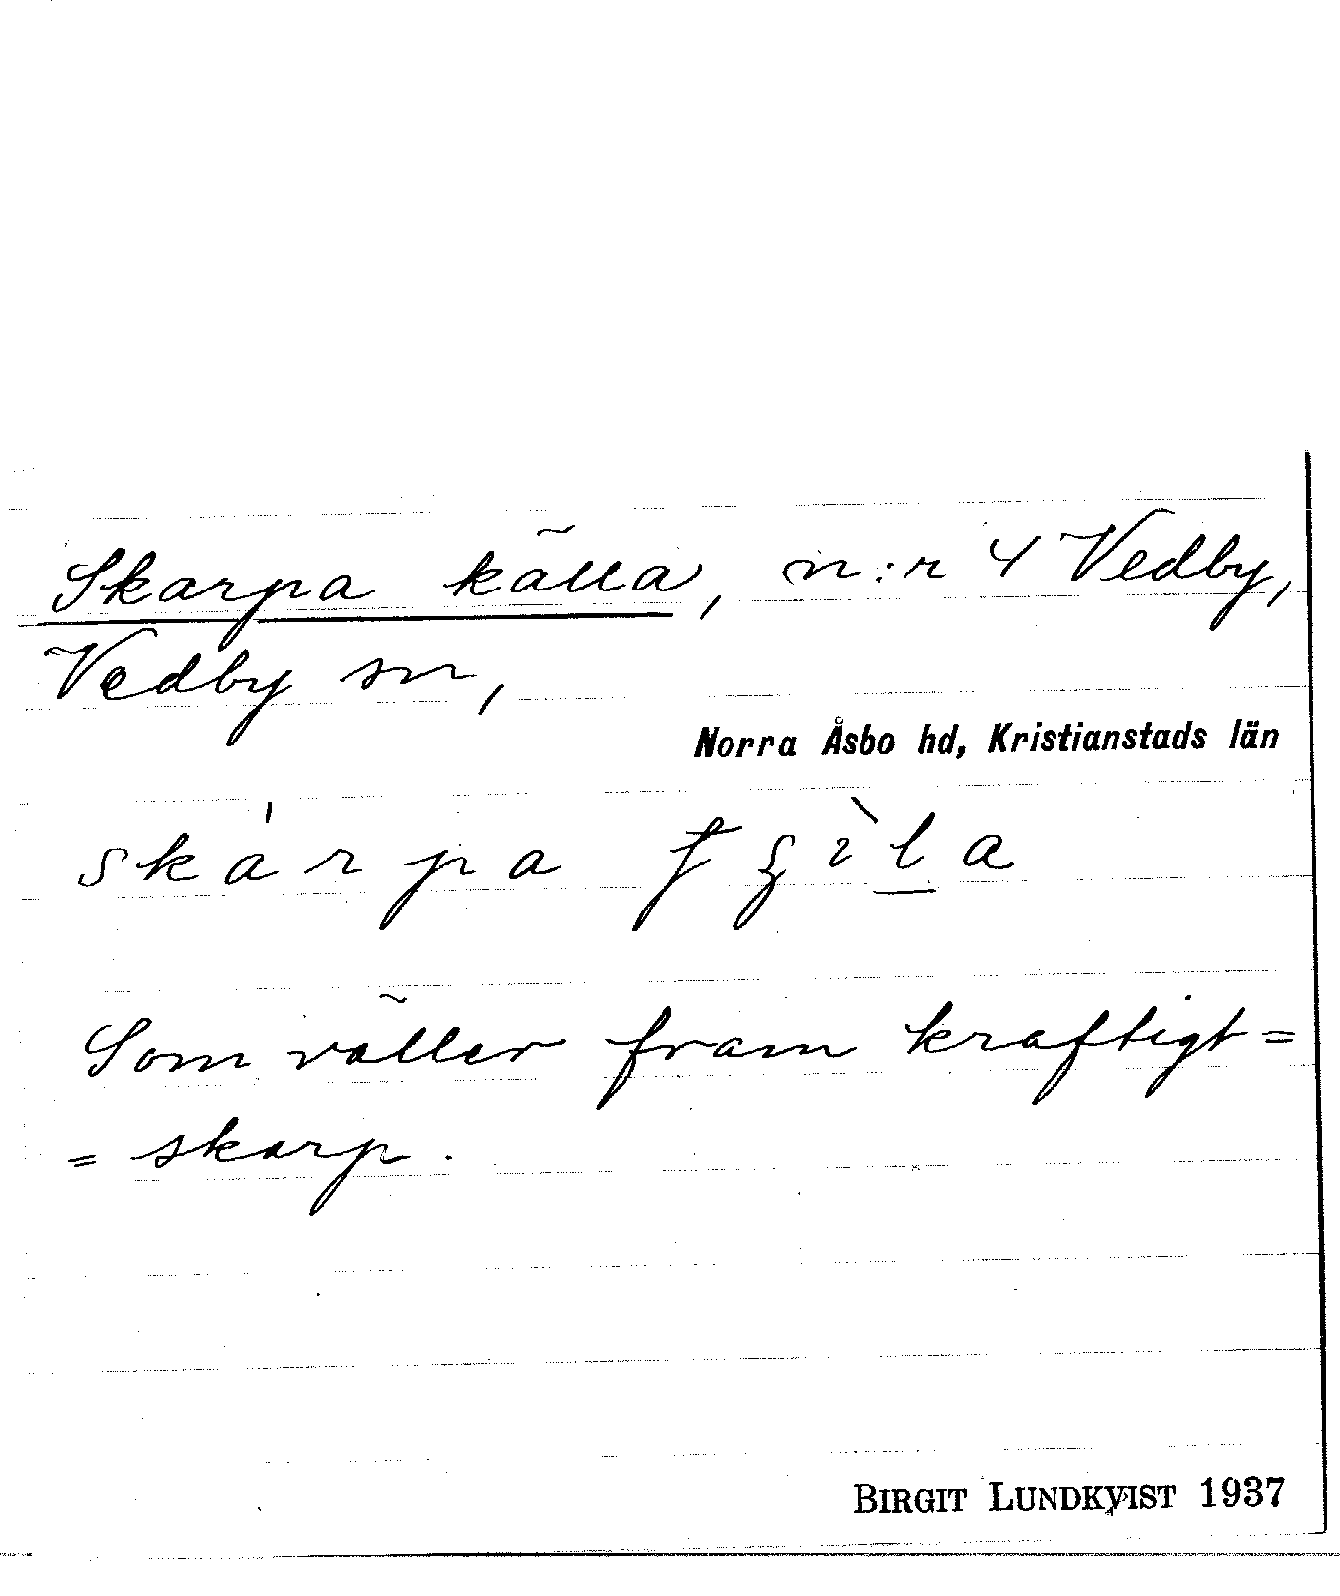 Skarpa källa, n:r 4 Vedby,
Vedby sn,
Norra Åsbo hd, Kristianstads län
skárpa
Som väller fram kraftigt=
= skarp.
BIRGIT LUNDKVIST 1937